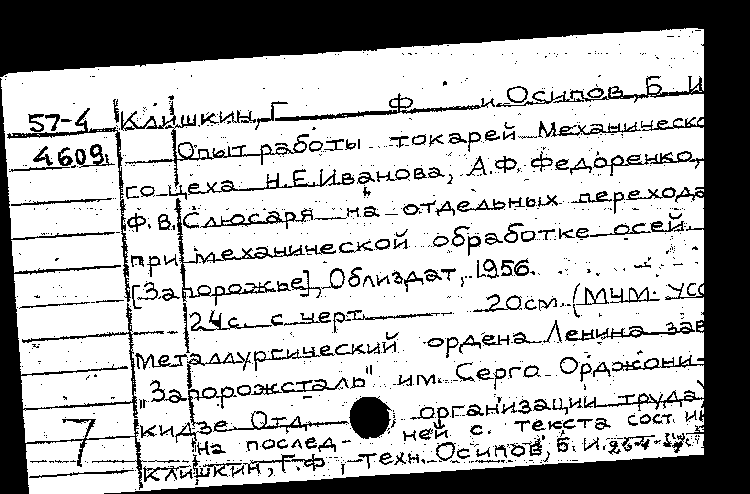 57-4 Клишкин, Г Ф и Осипов, Б И
4609 Опыт работы токарей механическо
го цеха Н.Е.Иванова, А.Ф. Федоренко,
Ф.В. Слюсаря на отдельных перехода
при механической обработке осей.
[Запорожье], Облиздат, 1956.
24с. с черт. 20см. (МЧМ. УСС
Металлургический ордена Ленина зав
"Запорожсталь" им. Серго Орджони-
кидзе Отд. организации труда)
7 На послед- ней с. текста сост.
Клишкин, Г.Ф., техн. Осипов, Б.И.